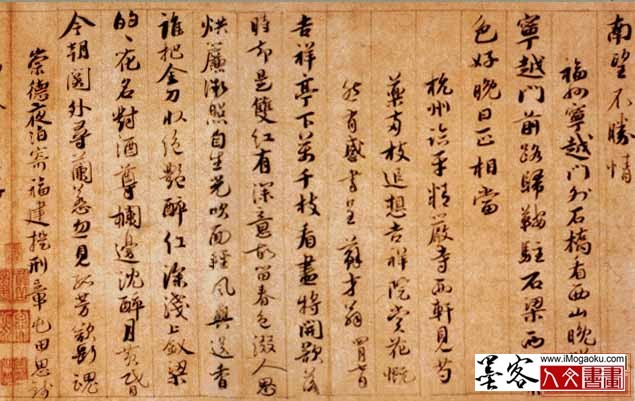 南望不勝情
福州寧越門外石橋看西山晚
寧越門前路歸鞍駐石梁西
色好晚日正相當
杭州臨平精嚴寺西軒見芍
藥兩枝追想吉祥院賞花慨
然有感書呈蘇才翁 四月七日
吉祥亭下萬千枝看盡將開欲落
時却是雙紅有深意故留春色綴人思
烘簾微照自生光吹面輕風與送香
誰把金刀收絕艷醉紅深淺上釵梁
的、花名對酒尊欄邊沈醉月黃昏
今朝關外尋蘭若忽見孤芳欲斷魂
崇德夜泊寄福建提刑章屯田思錢
墨客
www.iMogaoku.com
人文書畫